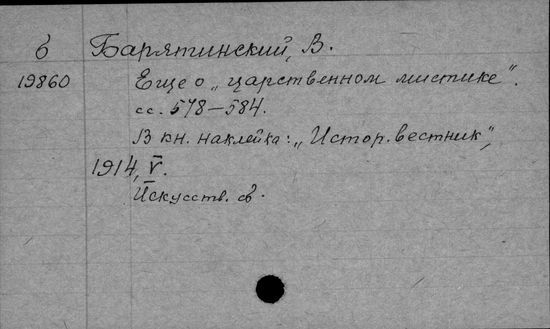 б Барятинский, В.
19860 Еще о „царственном мистике“.
сс. 578–584.
В кн. наклейка: „Истор. вестник“,
1914, V.
Искусств. об.